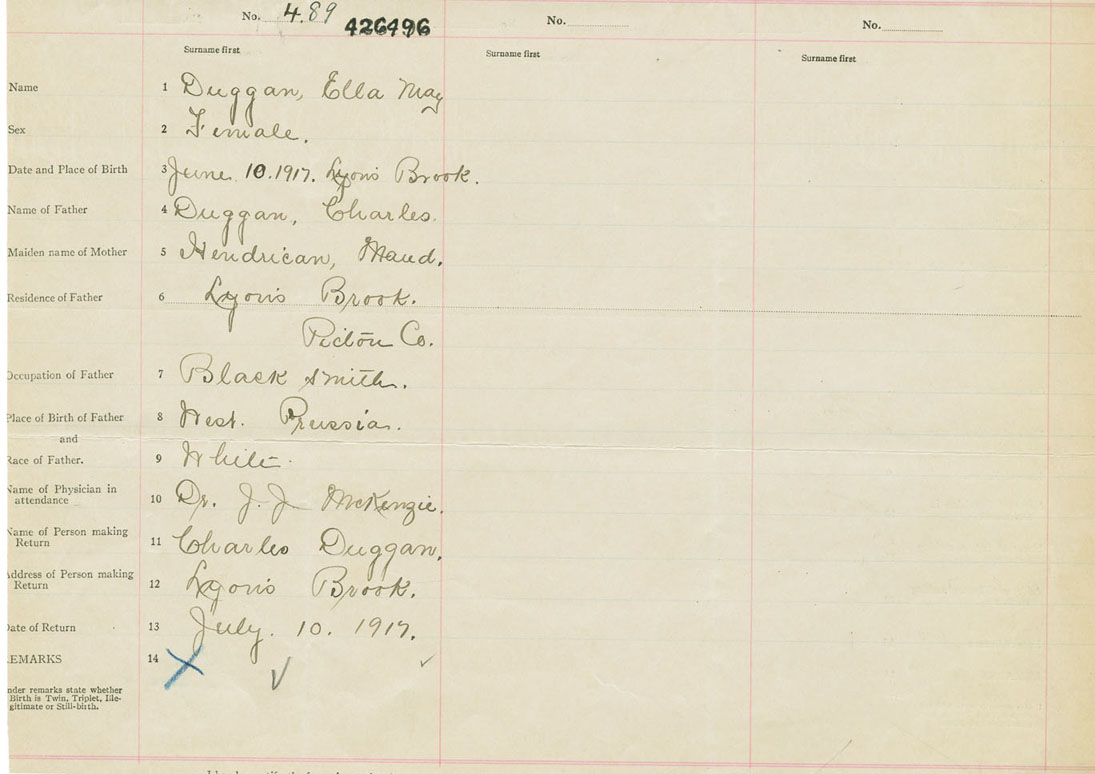 No. 4.89 No. No.
426496
Surname first Surname first Surname first
Name 1 Duggan, Ella May
Sex 2 Female.
Date and Place of Birth 3 June 10. 1917. Lyons Brook.
Name of Father 4 Duggan, Charles.
Maiden name of Mother 5 Hendrican, Maud.
Residence of Father 6 Lyons Brook.
Pictou Co.
Occupation of Father 7 Black smith.
Place of Birth of Father 8 West. Prussia.
and
Race of Father. 9 White.
Name of Physician in
attendance 10 Dr. J. J McKenzie.
Name of Person making
Return 11 Charles Duggan,
Address of Person making
Return 12 Lyons Brook.
Date of Return 13 July. 10. 1917.
REMARKS 14
Under remarks state whether
Birth is Twin, Triplet, Ille-
gitimate or Still-birth.